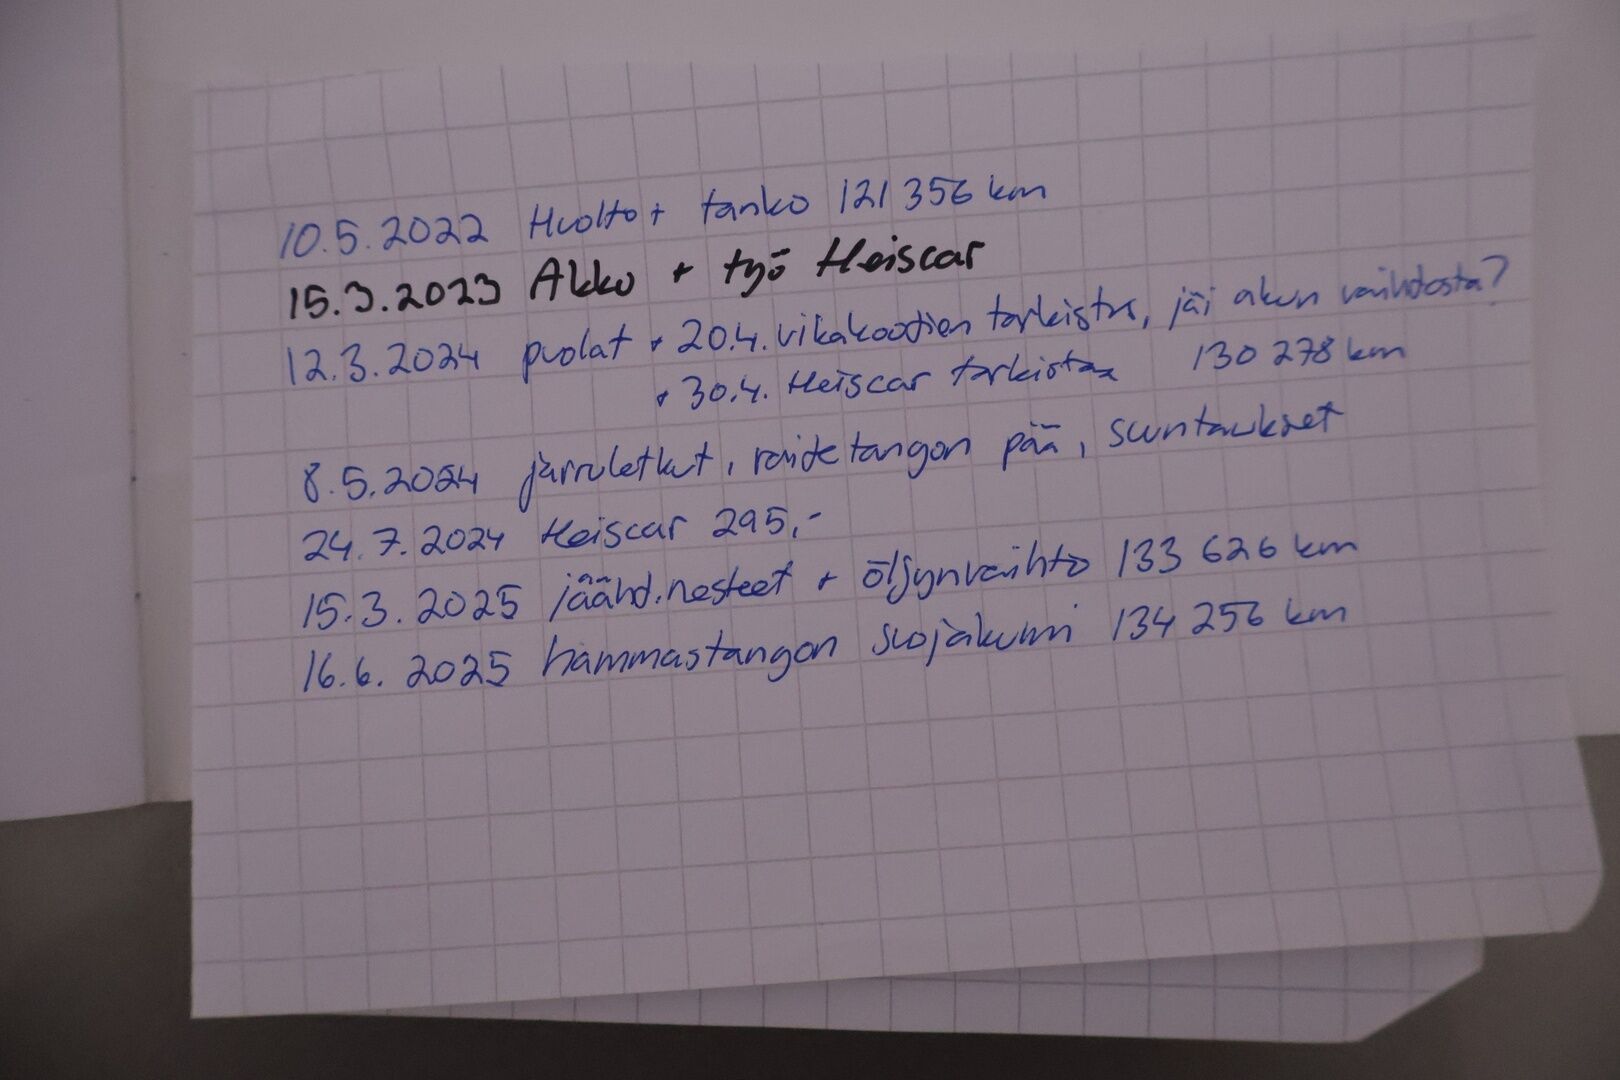 10.5.2022 Huolto + tanko 121 356 km
15.3.2023 Akku + työ Heiscar
12.3.2024 puolat + 20.4. vikakoodien tarkistus, jäi akun vaihdosta?
+ 30.4. Heiscar tarkistaa 130 278 km
8.5.2024 jarruletkut, raidetangon pää, suuntaukset
24.7.2024 Heiscar 295,-
15.3.2025 jäähd.nesteet + öljynvaihto 133 626 km
16.6.2025 hammastangon suojakumi 134 256 km